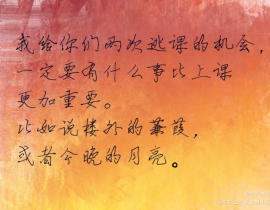 我给你们两次逃课的机会，
一定要有什么事比上课
更加重要。
比如说楼外的蒹葭，
或者今晚的月亮。